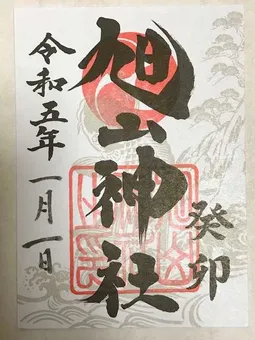 癸卯
旭山神社
令和五年一月一日